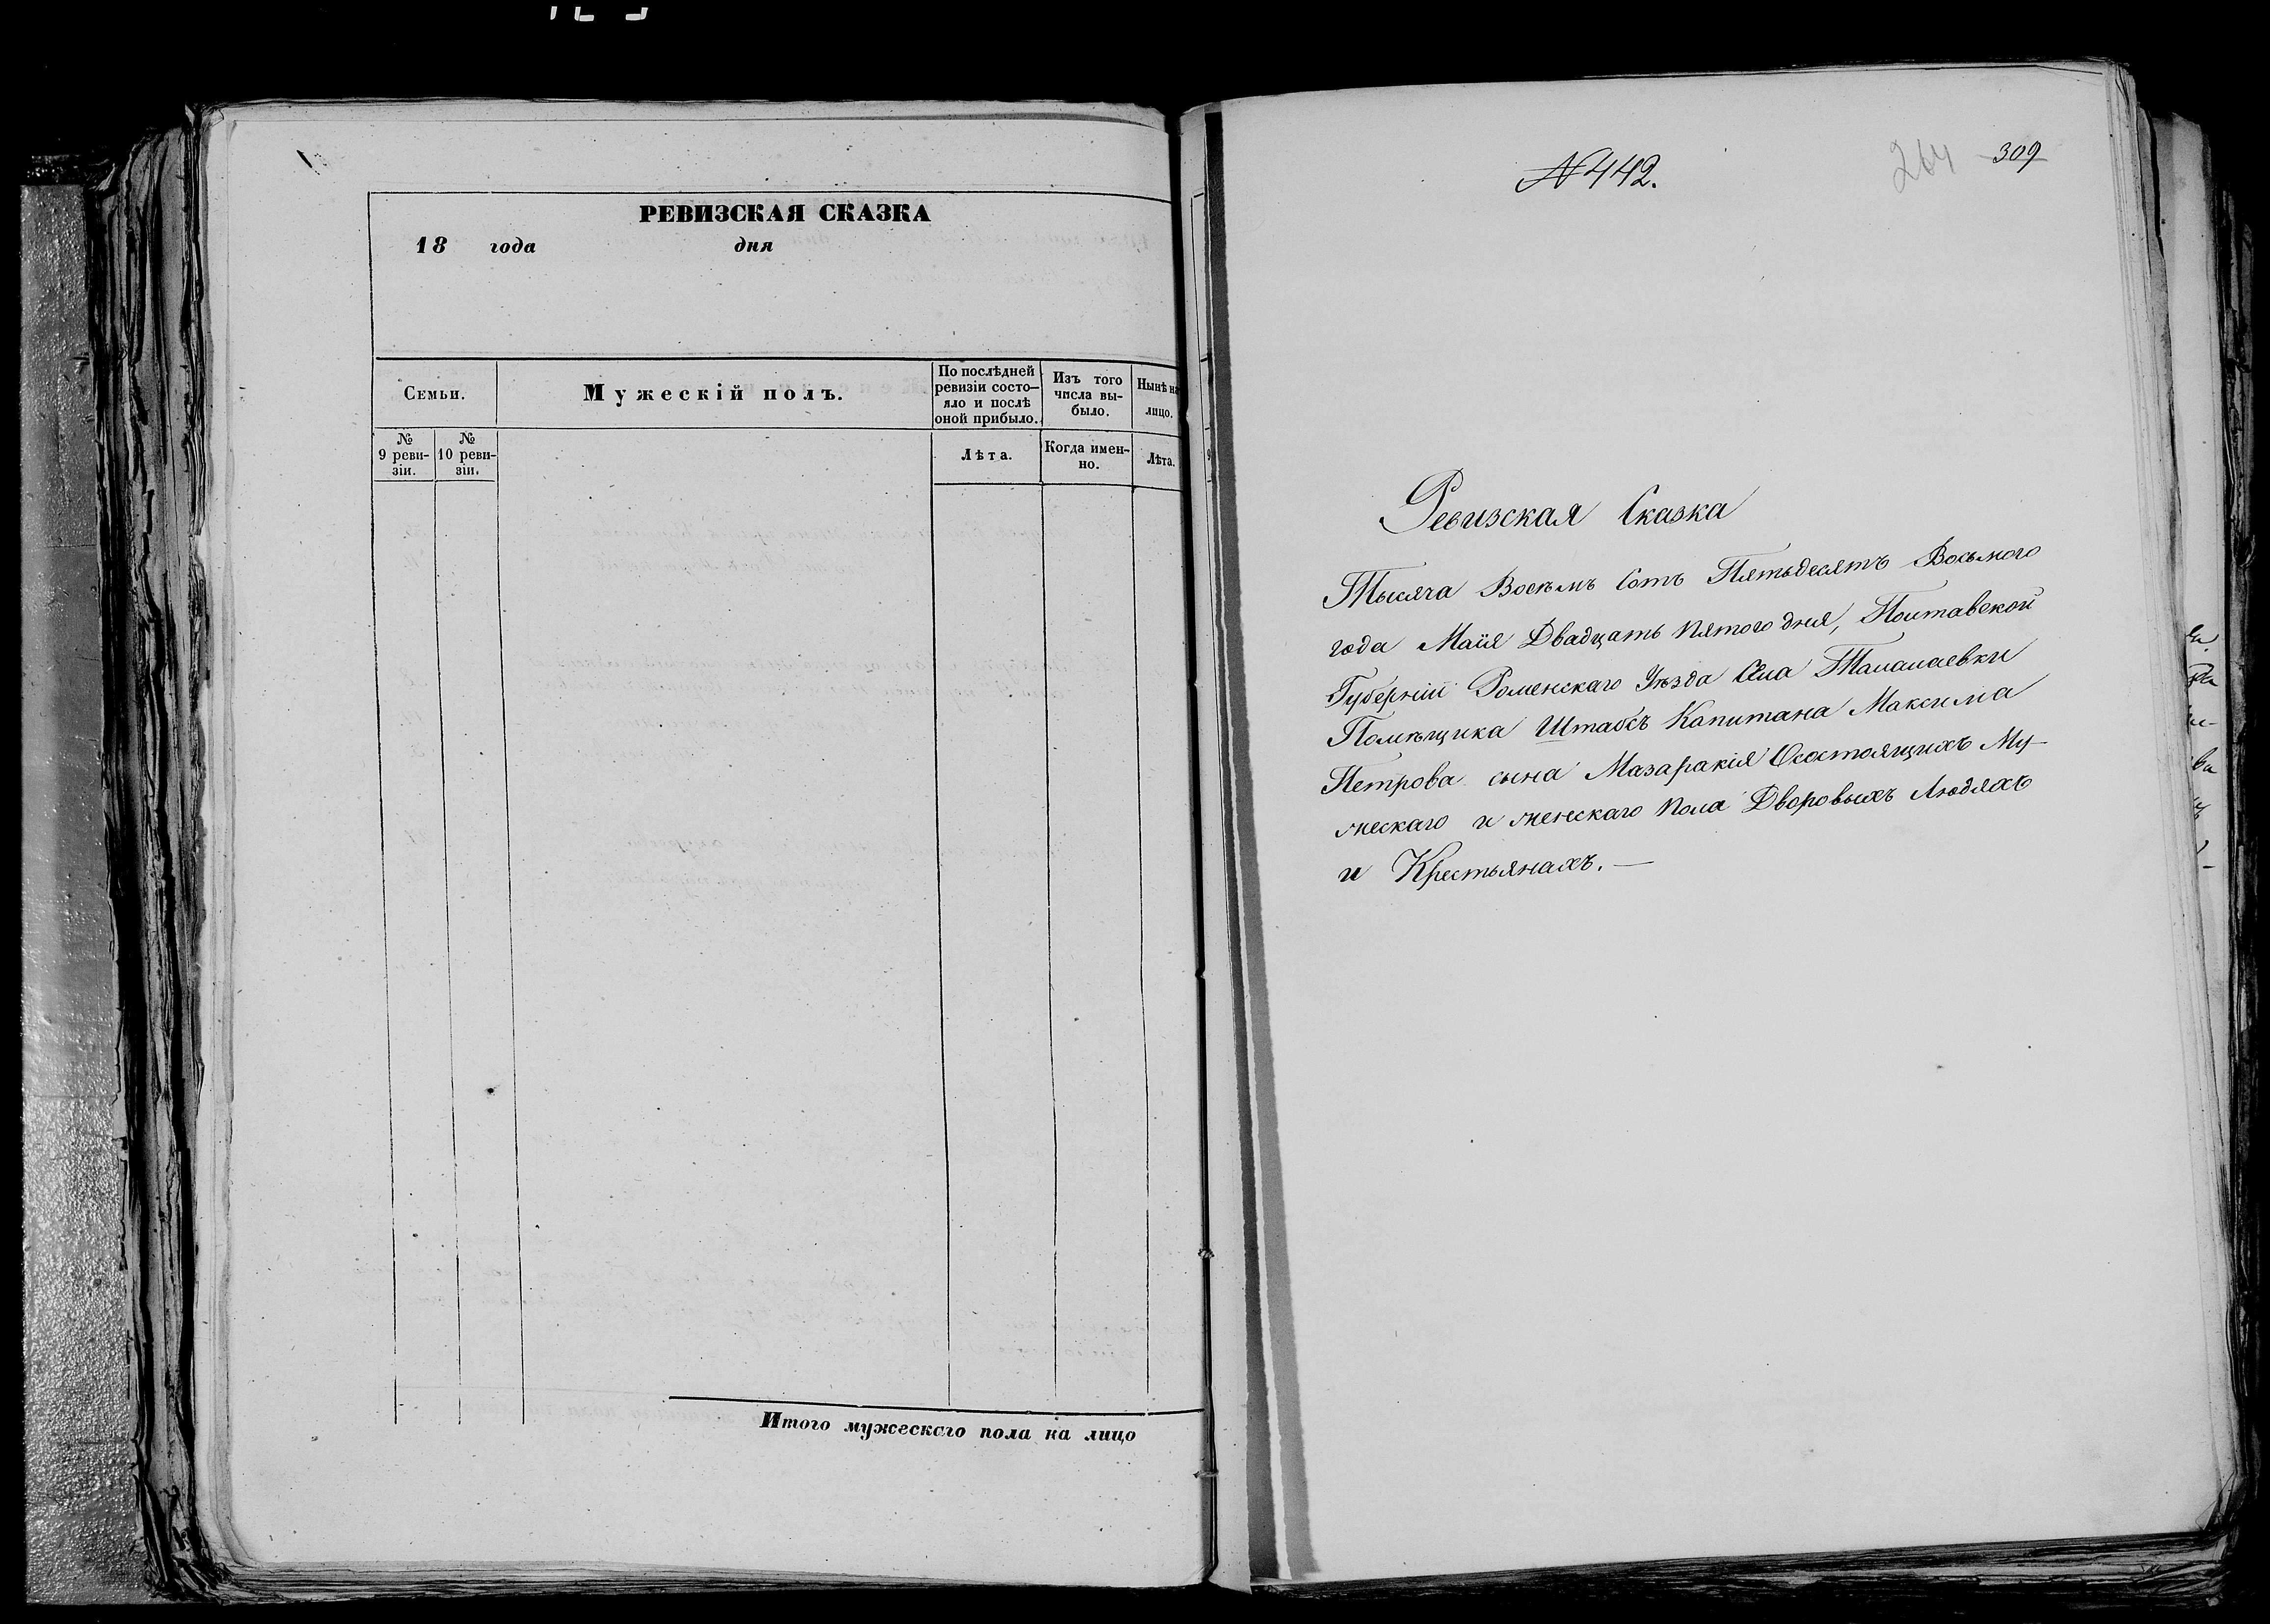 РЕВИЗСКАЯ СКАЗКА
18 года дня
Семьи.
Мужескій полъ.
По послѣдней
ревизіи состо-
яло и послѣ
оной прибыло.
Изъ того
числа вы-
было.
Нынѣ на
лицо.
№
9 реви-
зіи.
№
10 реви-
зіи.
Лѣта.
Когда имен-
но.
Лѣта.
Итого мужескаго пола на лицо
№442.
264 309
Ревизская Сказка
Тысяча Восемь Сотъ Пятьдесятъ Восьмого
года Маія Двадцать пятого дня, Полтавской
Губерніи Роменскаго Уѣзда Села Талалаевки
Помѣщика Штабсъ Капитана Максима
Петрова сына Мазаракія О состоящихъ Му-
жескаго и женскаго пола Дворовыхъ Людяхъ
и Крестьянахъ.—